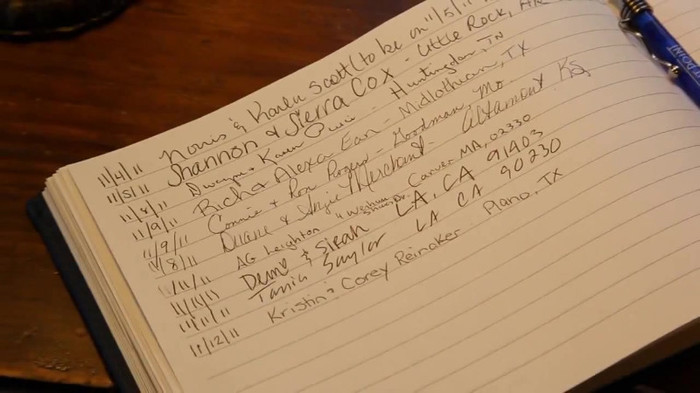 11/4/11 Norris & Karen Scott (to be on 11/5/11
11/5/11 Shannon & Sierra Cox - Little Rock, AR
11/8/11 Dwayne & Karen - Huntingdon, TN
11/9/11 Rich & Alexa Earl - Midlothian, TX
11/9/11 Connie & Ron Rogers - Goodman, Mo
11/8/11 Duane & Angie Merchant - Altamont KS
11/11/11 AG Leighton 4 Carver MA, 02330
11/11/11 Demo & Sirah LA, CA 91403
11/11/11 Tania Saylor LA CA 90230
11/12/11 Kristin & Corey Reinaker Plano, TX
POINT